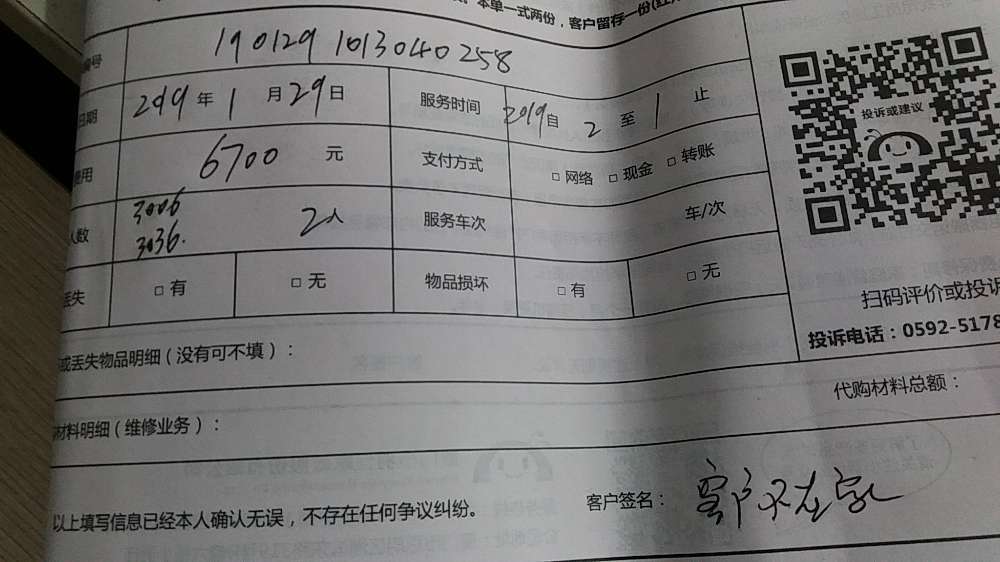 本单一式两份，客户留存一份(红
号 190129 1013040258
日期 2019年 1月 29日 服务时间 2019自 2 至 1 止
费用 6700 元 支付方式 □ 网络 □ 现金 □ 转账
人数 3006 3036. 2人 服务车次 车/次
丢失 □ 有 □ 无 物品损坏 □ 有 □ 无
投诉或建议
扫码评价或投诉
投诉电话：0592-5178
或丢失物品明细（没有可不填）：
代购材料总额：
材料明细（维修业务）：
以上填写信息已经本人确认无误，不存在任何争议纠纷。
客户签名： 客户不在家